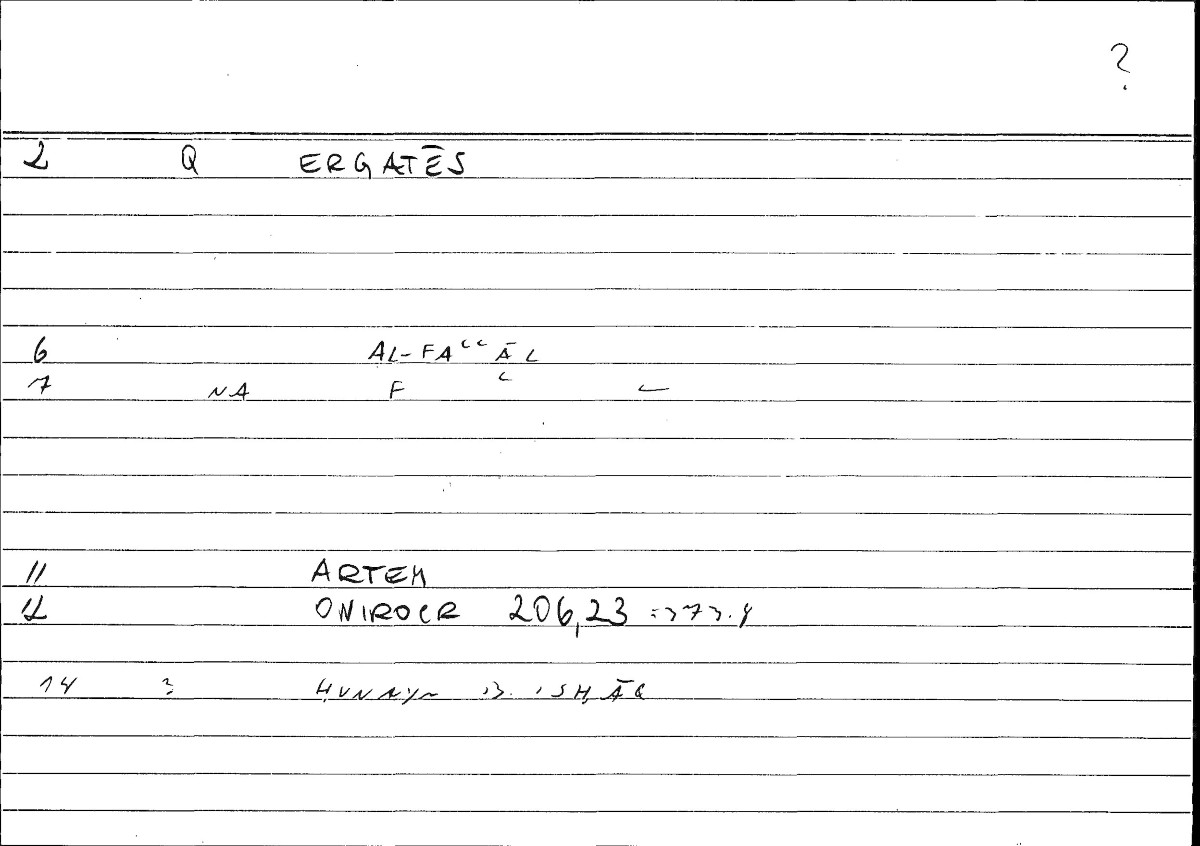 ?
2 Q ERGATĒS
6 AL-FAʿʿĀL
7 NA F ʿ
11 ARTEM
12 ONIROCR 206,23 = 373.8
14 ? ḤUNAYN B. ISḤĀQ